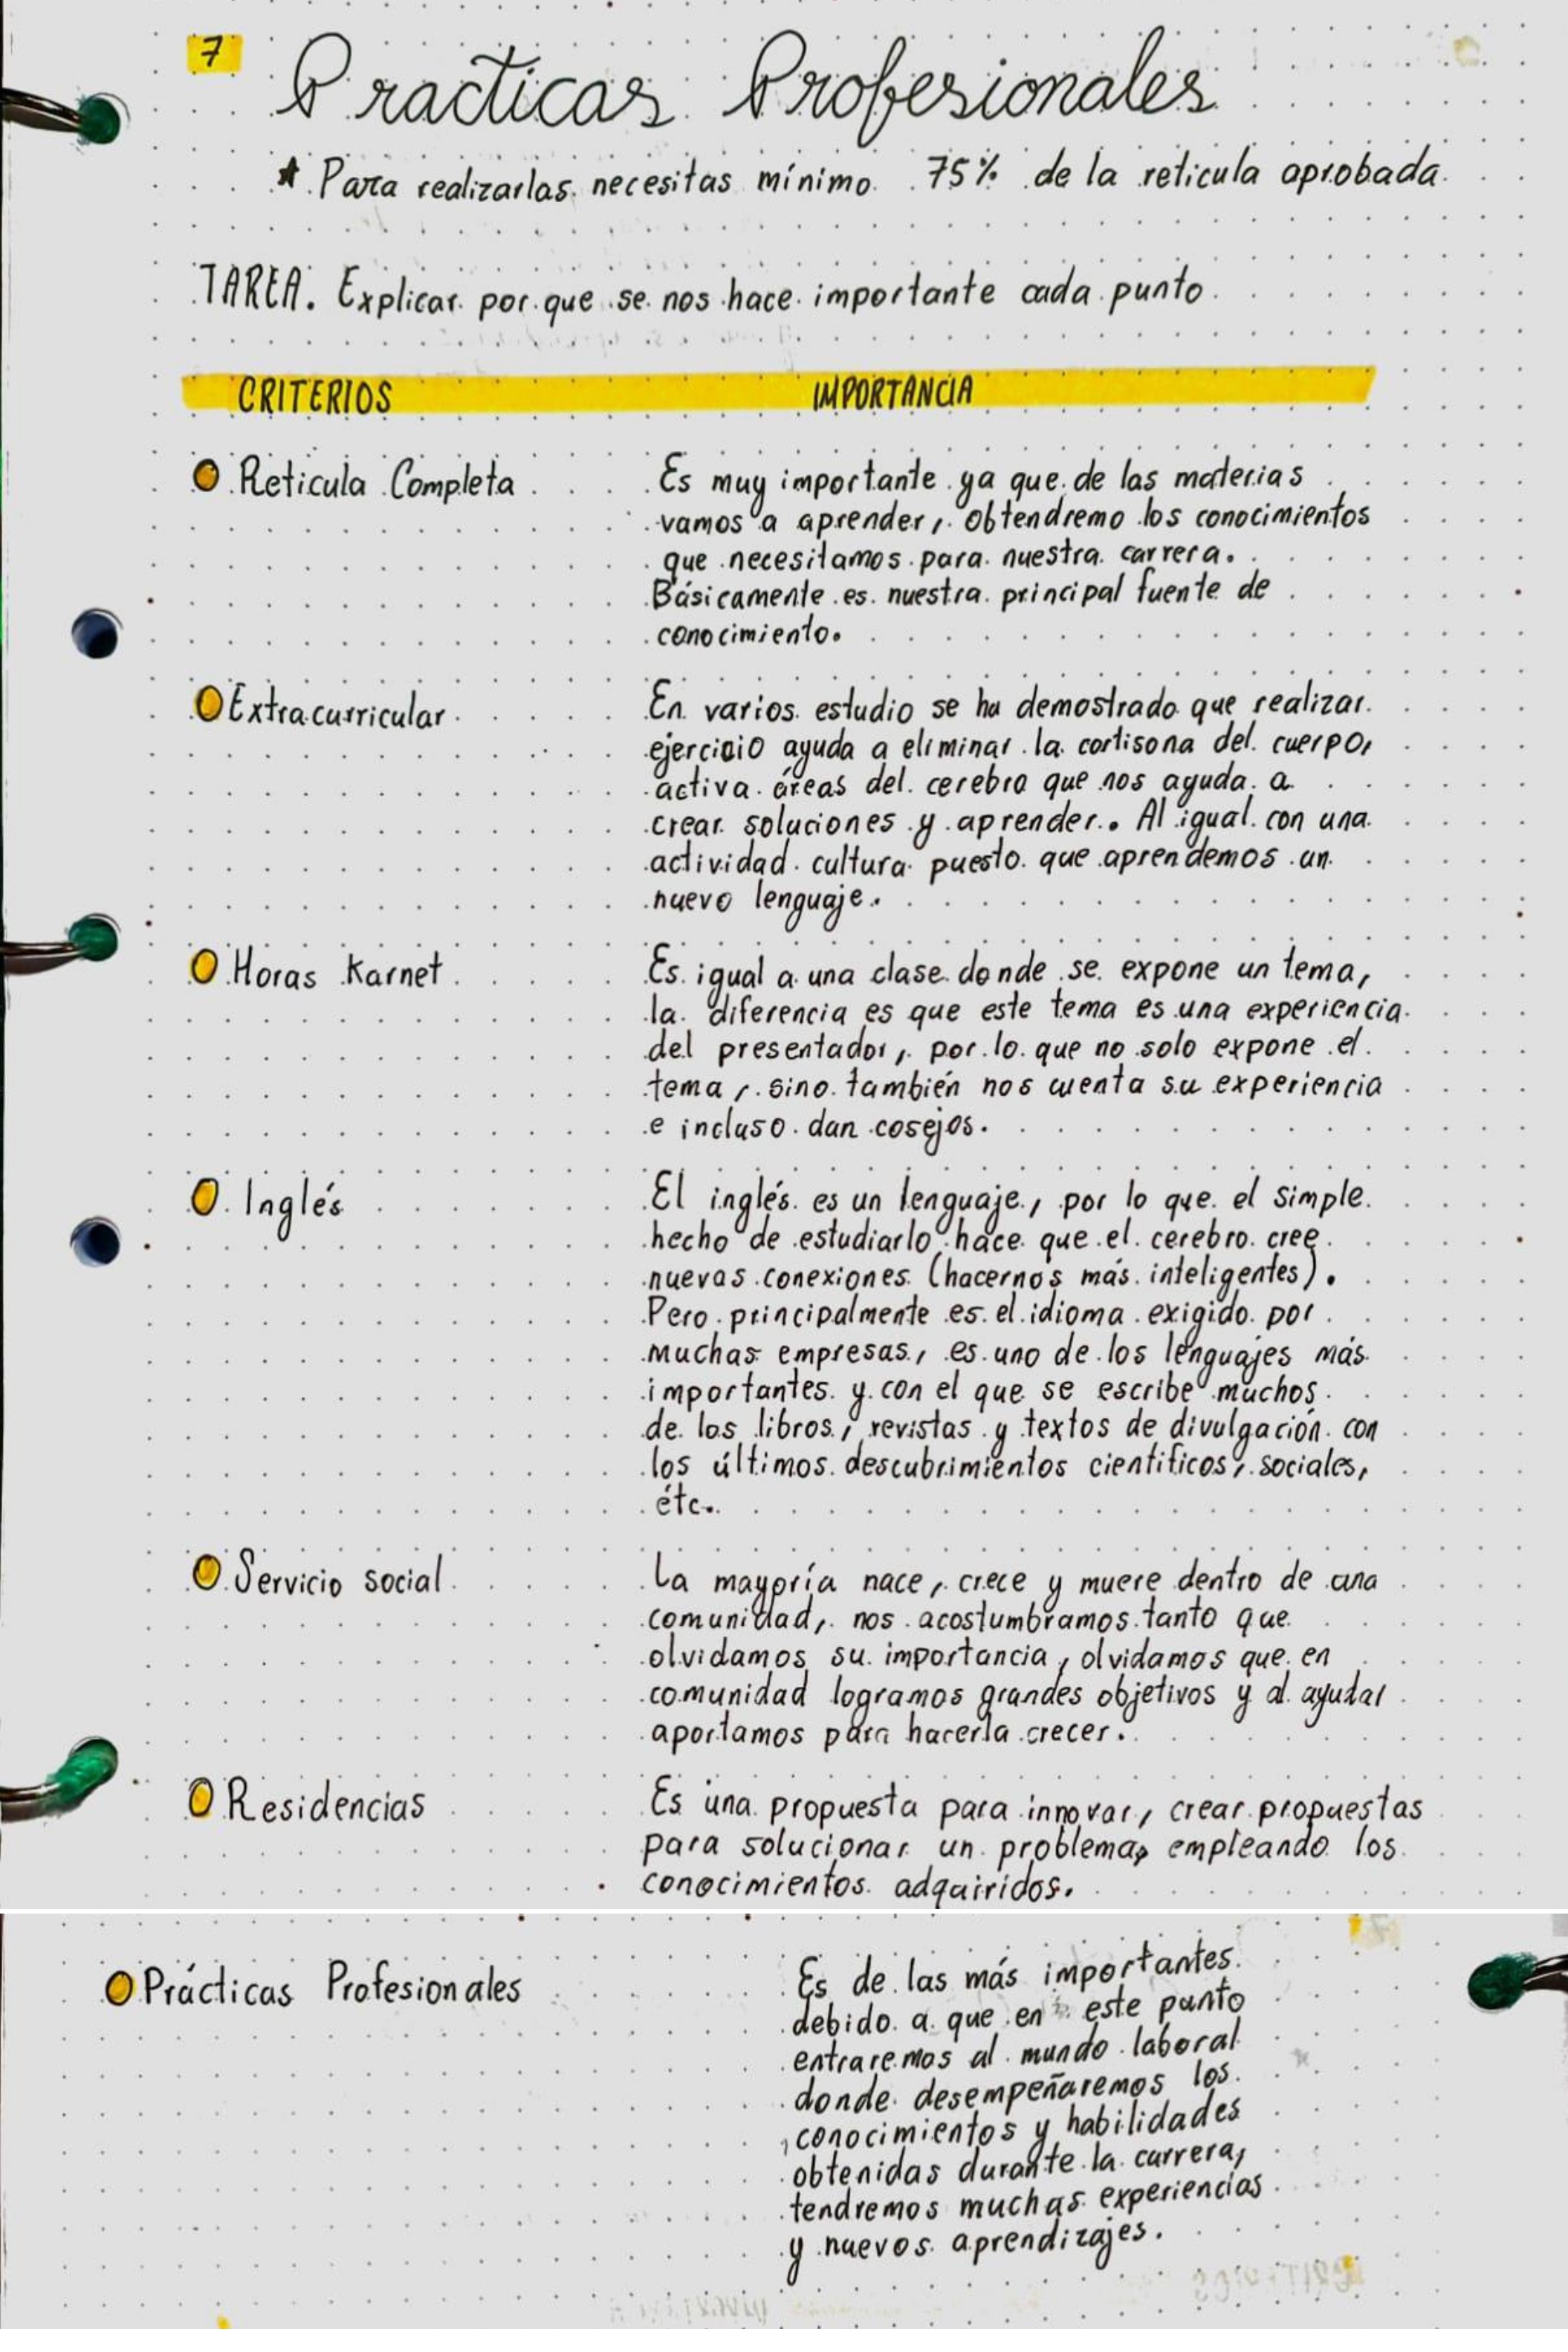 7
Practicas Profesionales
★ Para realizarlas necesitas mínimo 75% de la reticula aprobada
TAREA. Explicar por que se nos hace importante cada punto
CRITERIOS IMPORTANCIA
Reticula Completa Es muy importante ya que de las materias
vamos a aprender, obtendremo los conocimientos
que necesitamos para nuestra carrera.
Básicamente es nuestra principal fuente de
conocimiento.
Extracurricular En varios estudio se ha demostrado que realizar
ejercicio ayuda a eliminar la cortisona del cuerpo,
activa áreas del cerebro que nos ayuda a
crear soluciones y aprender. Al igual con una
actividad cultura puesto que aprendemos un
nuevo lenguaje.
Horas Karnet Es igual a una clase donde se expone un tema,
la diferencia es que este tema es una experiencia
del presentador, por lo que no solo expone el
tema, sino también nos cuenta su experiencia
e incluso dan cosejos.
Inglés El inglés es un lenguaje, por lo que el simple
hecho de estudiarlo hace que el cerebro cree
nuevas conexiones (hacernos más inteligentes).
Pero principalmente es el idioma exigido por
muchas empresas, es uno de los lenguajes más
importantes y con el que se escribe muchos
de los libros, revistas y textos de divulgación con
los últimos descubrimientos cientificos, sociales,
étc.
Servicio social La mayoría nace, crece y muere dentro de una
comunidad, nos acostumbramos tanto que
olvidamos su importancia, olvidamos que en
comunidad logramos grandes objetivos y al ayudar
aportamos para hacerla crecer.
Residencias Es una propuesta para innovar, crear propuestas
para solucionar un problema, empleando los
conocimientos adquiridos.
Prácticas Profesionales Es de las más importantes
debido a que en este punto
entraremos al mundo laboral
donde desempeñaremos los
conocimientos y habilidades
obtenidas durante la carrera,
tendremos muchas experiencias
y nuevos aprendizajes.